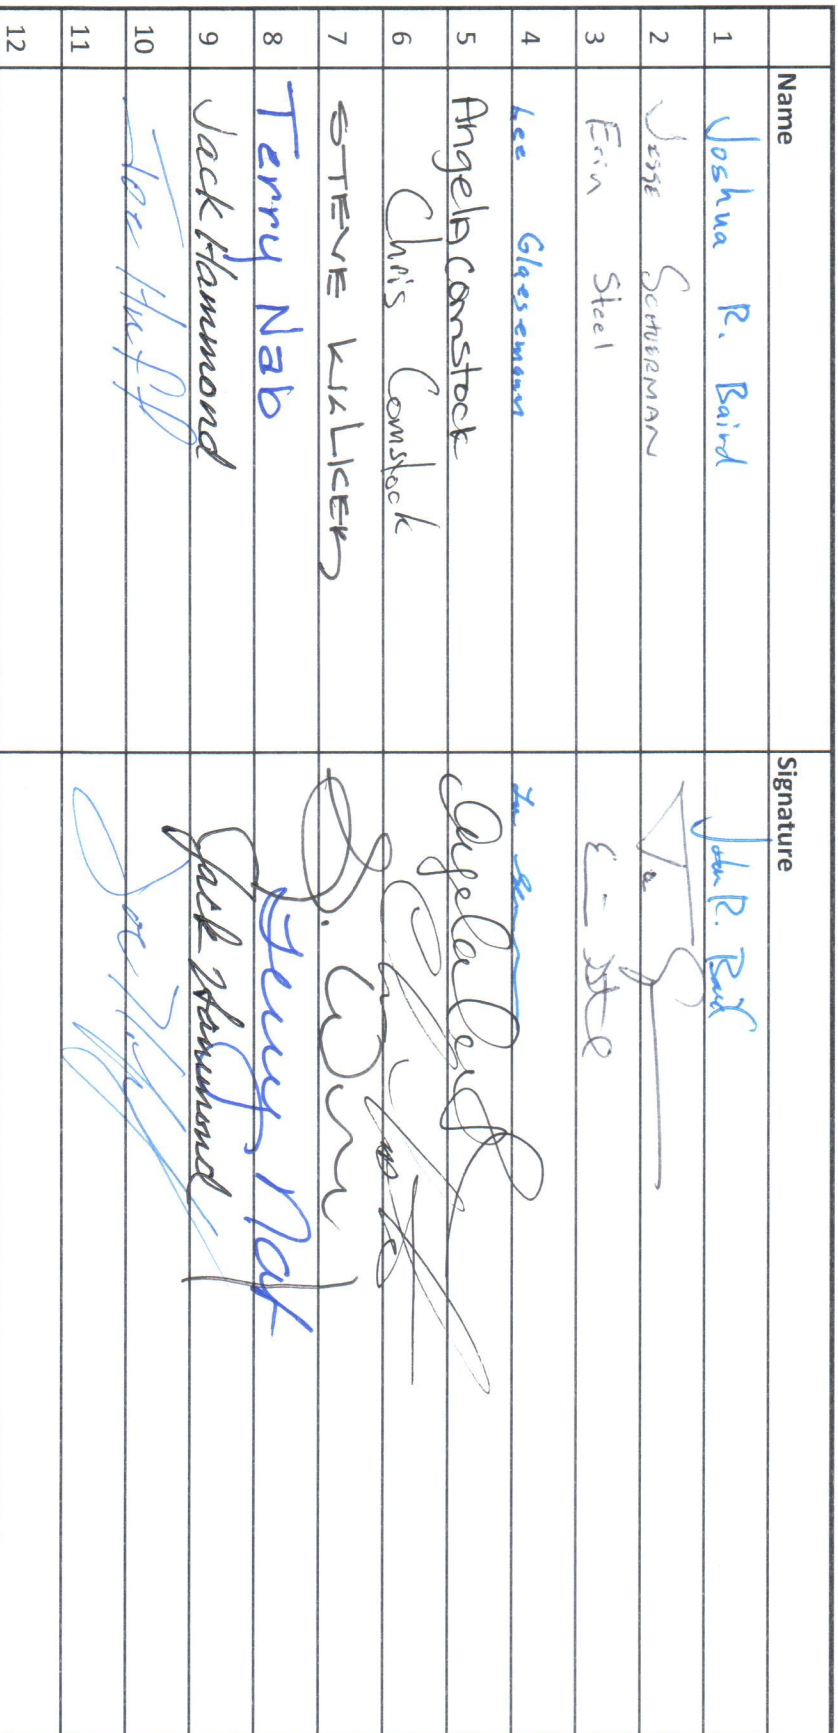 Name Signature
1 Joshua R. Baird John R. Baird
2 Jesse SCHUERMAN
3 Erin Steel
4 Lee Glaesemann
5 Angela Comstock
6 Chris Comstock
7 STEVE
8 Terry Nab Terry Nab
9 Jack Hammond Jack Hammond
10 Joe Huff Joe Huff
11
12